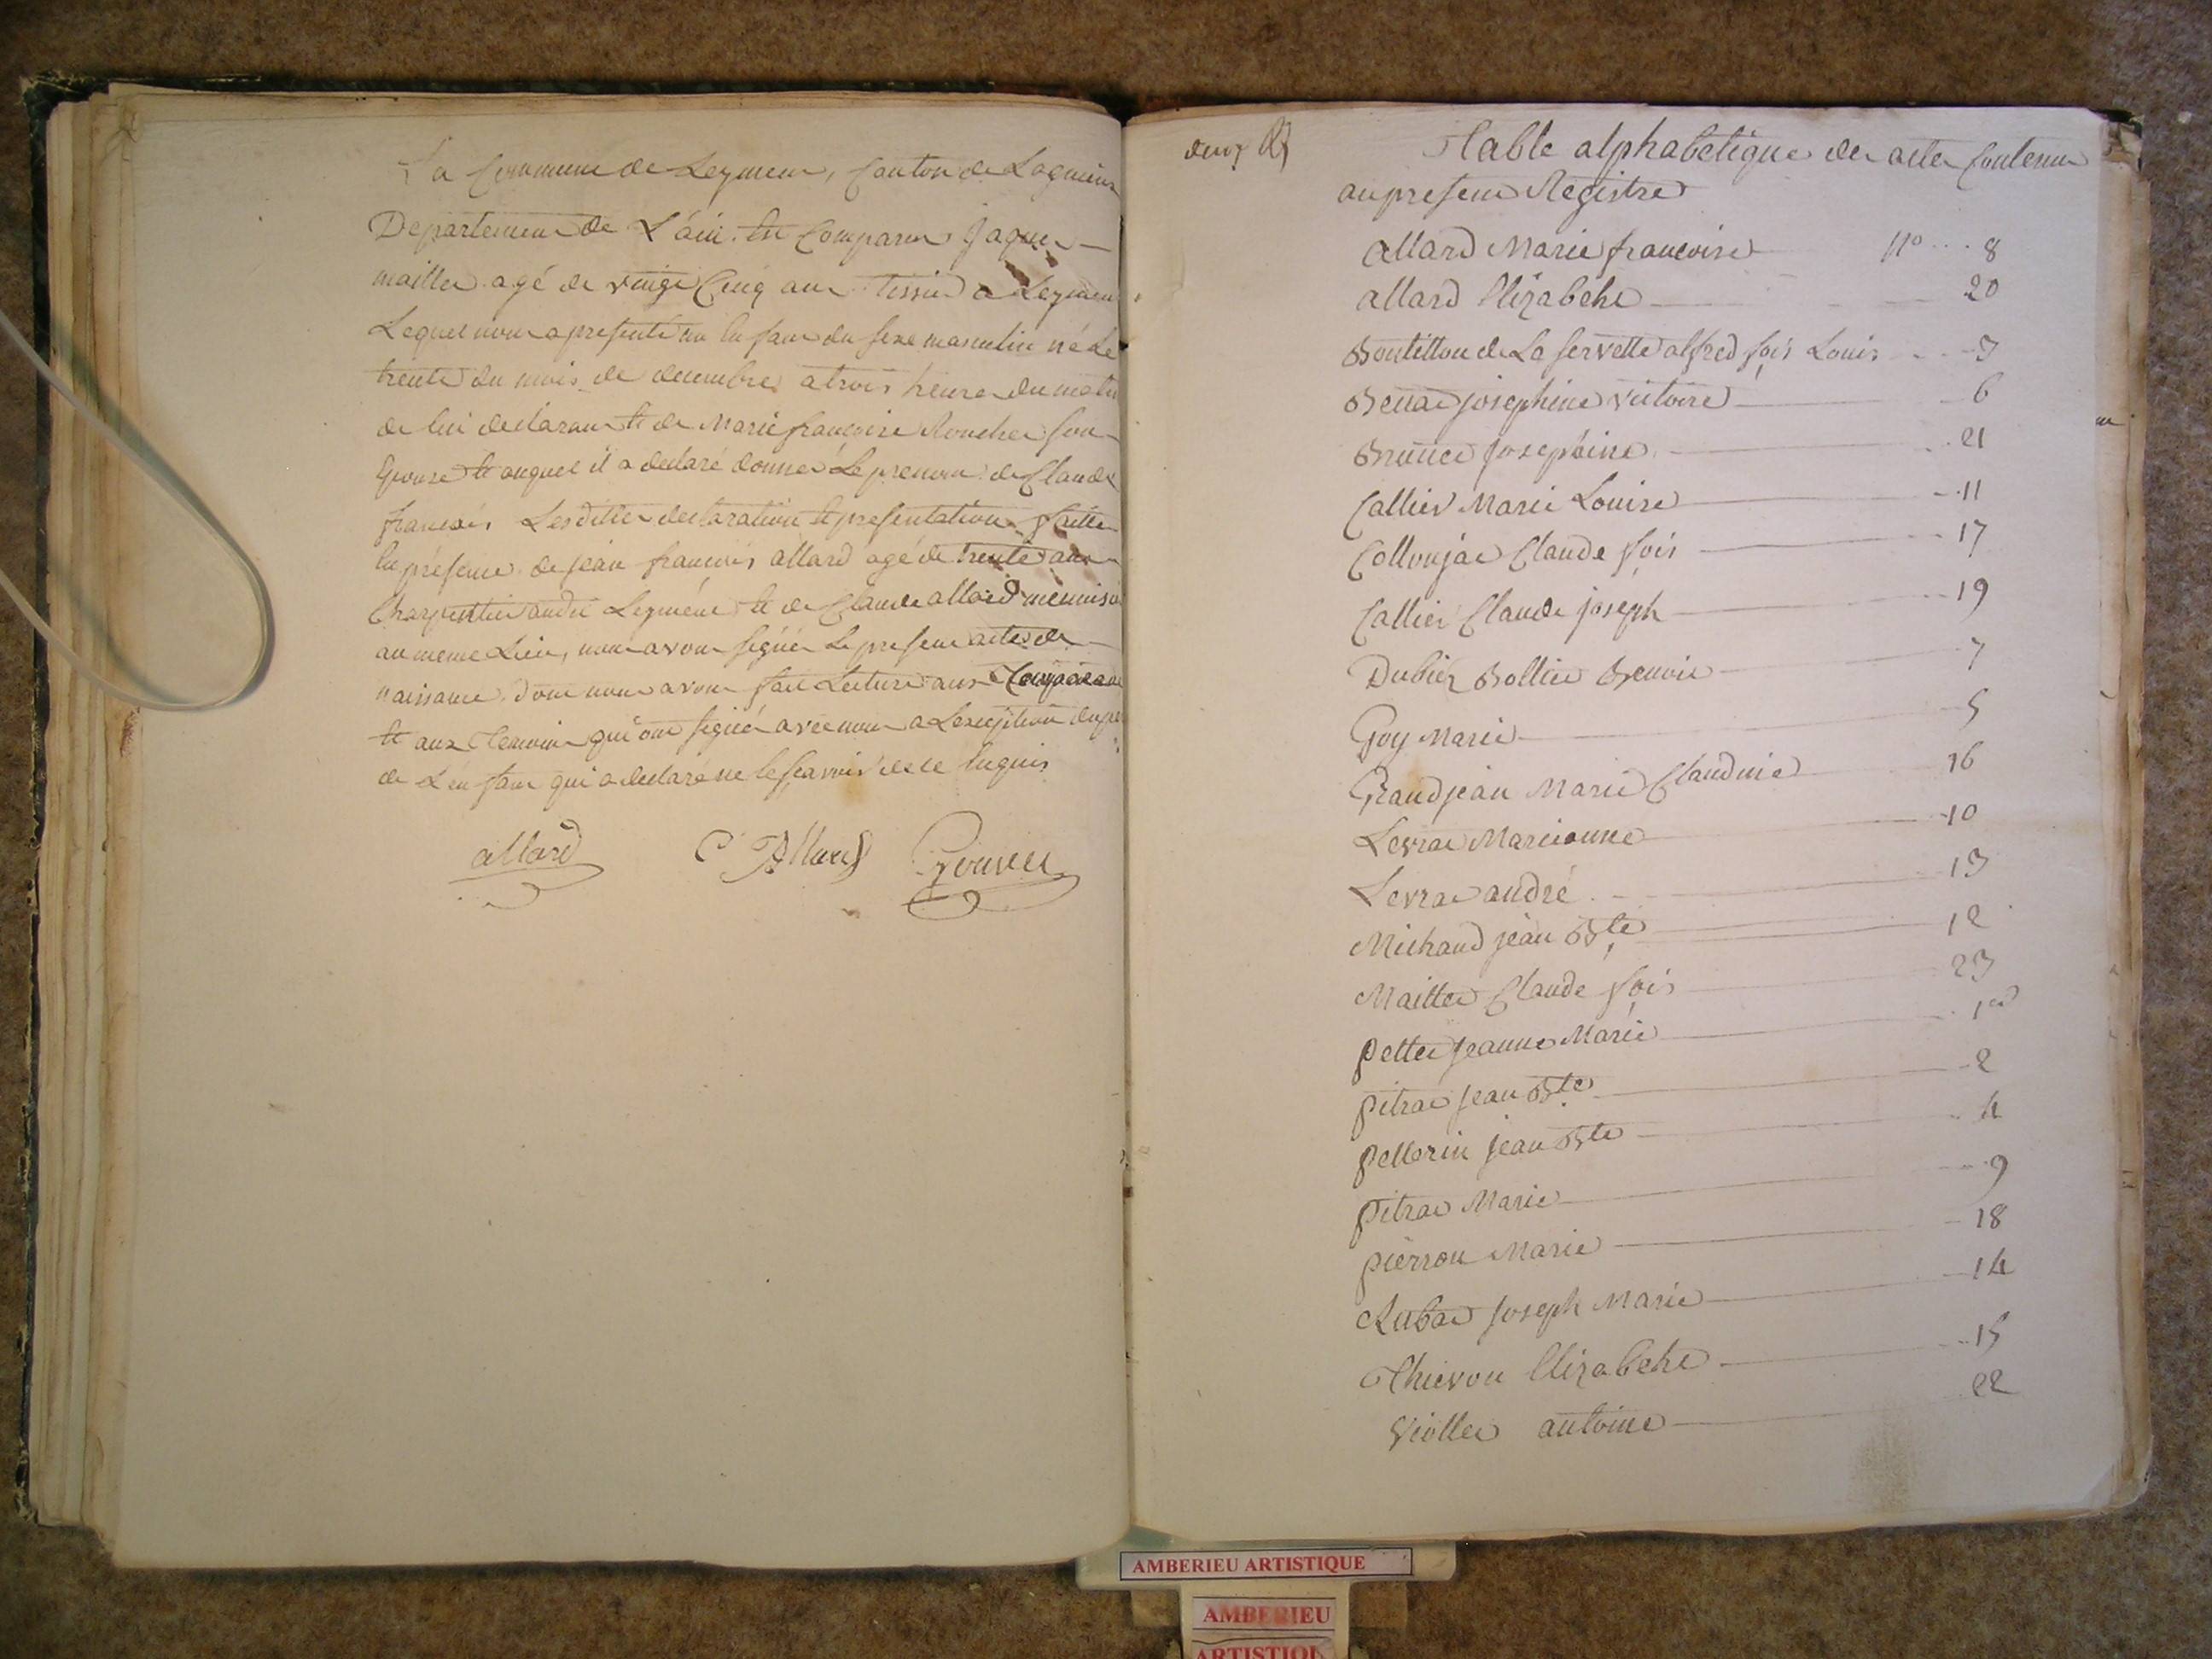 La Commune de Leyment, Canton de Lagnieu
Departement de L'ain. Est Comparu Jaques
maillet agé de vingt Cinq ans tissier a Leyment
Lequel nous a presenté un Enfant du sexe masculin né Le
trente du mois de decembre a trois heures du matin
de lui declarant Et de Marie françoise Rouchet son
Epouse Et auquel il a declaré donner Le prenom de Claude
francois Lesdittes declaration Et presentation faittes
En présence de jean francois allard agé de trente ans
Charpentier audit Leyment Et de Claude allard menuisier
au meme Lieu, nous avons signés Le present acte de
naissance dont nous avons fait Lecture aux Comparant
Et aux Temoins qui ont signés avec nous a L'exception du pere
de L'enfant qui a declaré ne le sçavoir de ce Enquis
allard C Allard
deux
Table alphabetique des actes Contenus
au present Registre
allard Marie francoise n° 8
allard Elizabeth 20
Boutillon de La servette alfred fois Louis 3
josephine victoire 6
Brunet josephine 21
Callier Marie Louise 11
Collonjat Claude fois 17
Callier Claude joseph 19
Dubiez Bollier Benoit 7
Goy Marie 5
Grandjean Marie Claudine 16
Levrat Marianne 10
Levrat andré 13
Michaud jean Bte 12
Maillet Claude fois 23
Pettet jeanne Marie 1er
Pitrat jean Bte 2
Pellerin jean Bte 4
Pitrat Marie 9
Pierron Marie 18
Rubat Joseph Marie 14
Thievon Elizabeth 15
Viollet antoine 22
AMBERIEU ARTISTIQUE
AMBERIEU
ARTISTIQU